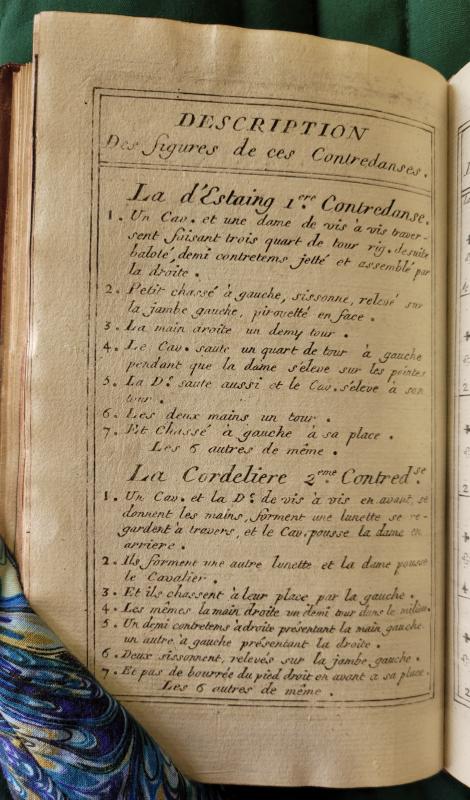 DESCRIPTION
Des figures de ces Contredanses.
La d'Estaing 1.ere Contredanse.
1. Un Cav. et une dame de vis à vis traver-
sent faisant trois quart de tour rig. de suite
baloté, demi contretems jetté et assemblé par
la droite.
2. Petit chassé à gauche, sissonne, relevé sur
la jambe gauche, pirovetté en face.
3. La main droite un demy tour.
4. Le Cav. saute un quart de tour à gauche
pendant que la dame s'eleve sur les pointes
5. La D.e saute aussi et le Cav. s'eleve à son
tour.
6. Les deux mains un tour.
7. Et Chassé à gauche à sa place.
Les 6 autres de même.
La Cordeliere 2.eme Contred.se
1. Un Cav. et la D.e de vis à vis en avant, se
donnent les mains, forment une lunette se re-
gardent à travers, et le Cav. pousse la dame en
arriere.
2. Ils forment une autre lunette et la dame pousse
le Cavalier.
3. Et ils chassent à leur place par la gauche.
4. Les mêmes la main droite un demi tour dans le milieu.
5. Un demi contretems à droite présentant la main gauche
un autre à gauche présentant la droite.
6. Deux sissonnent, relevés sur la jambe gauche.
7. Et pas de bourrée du pied droit en avant à sa place.
Les 6 autres de même.